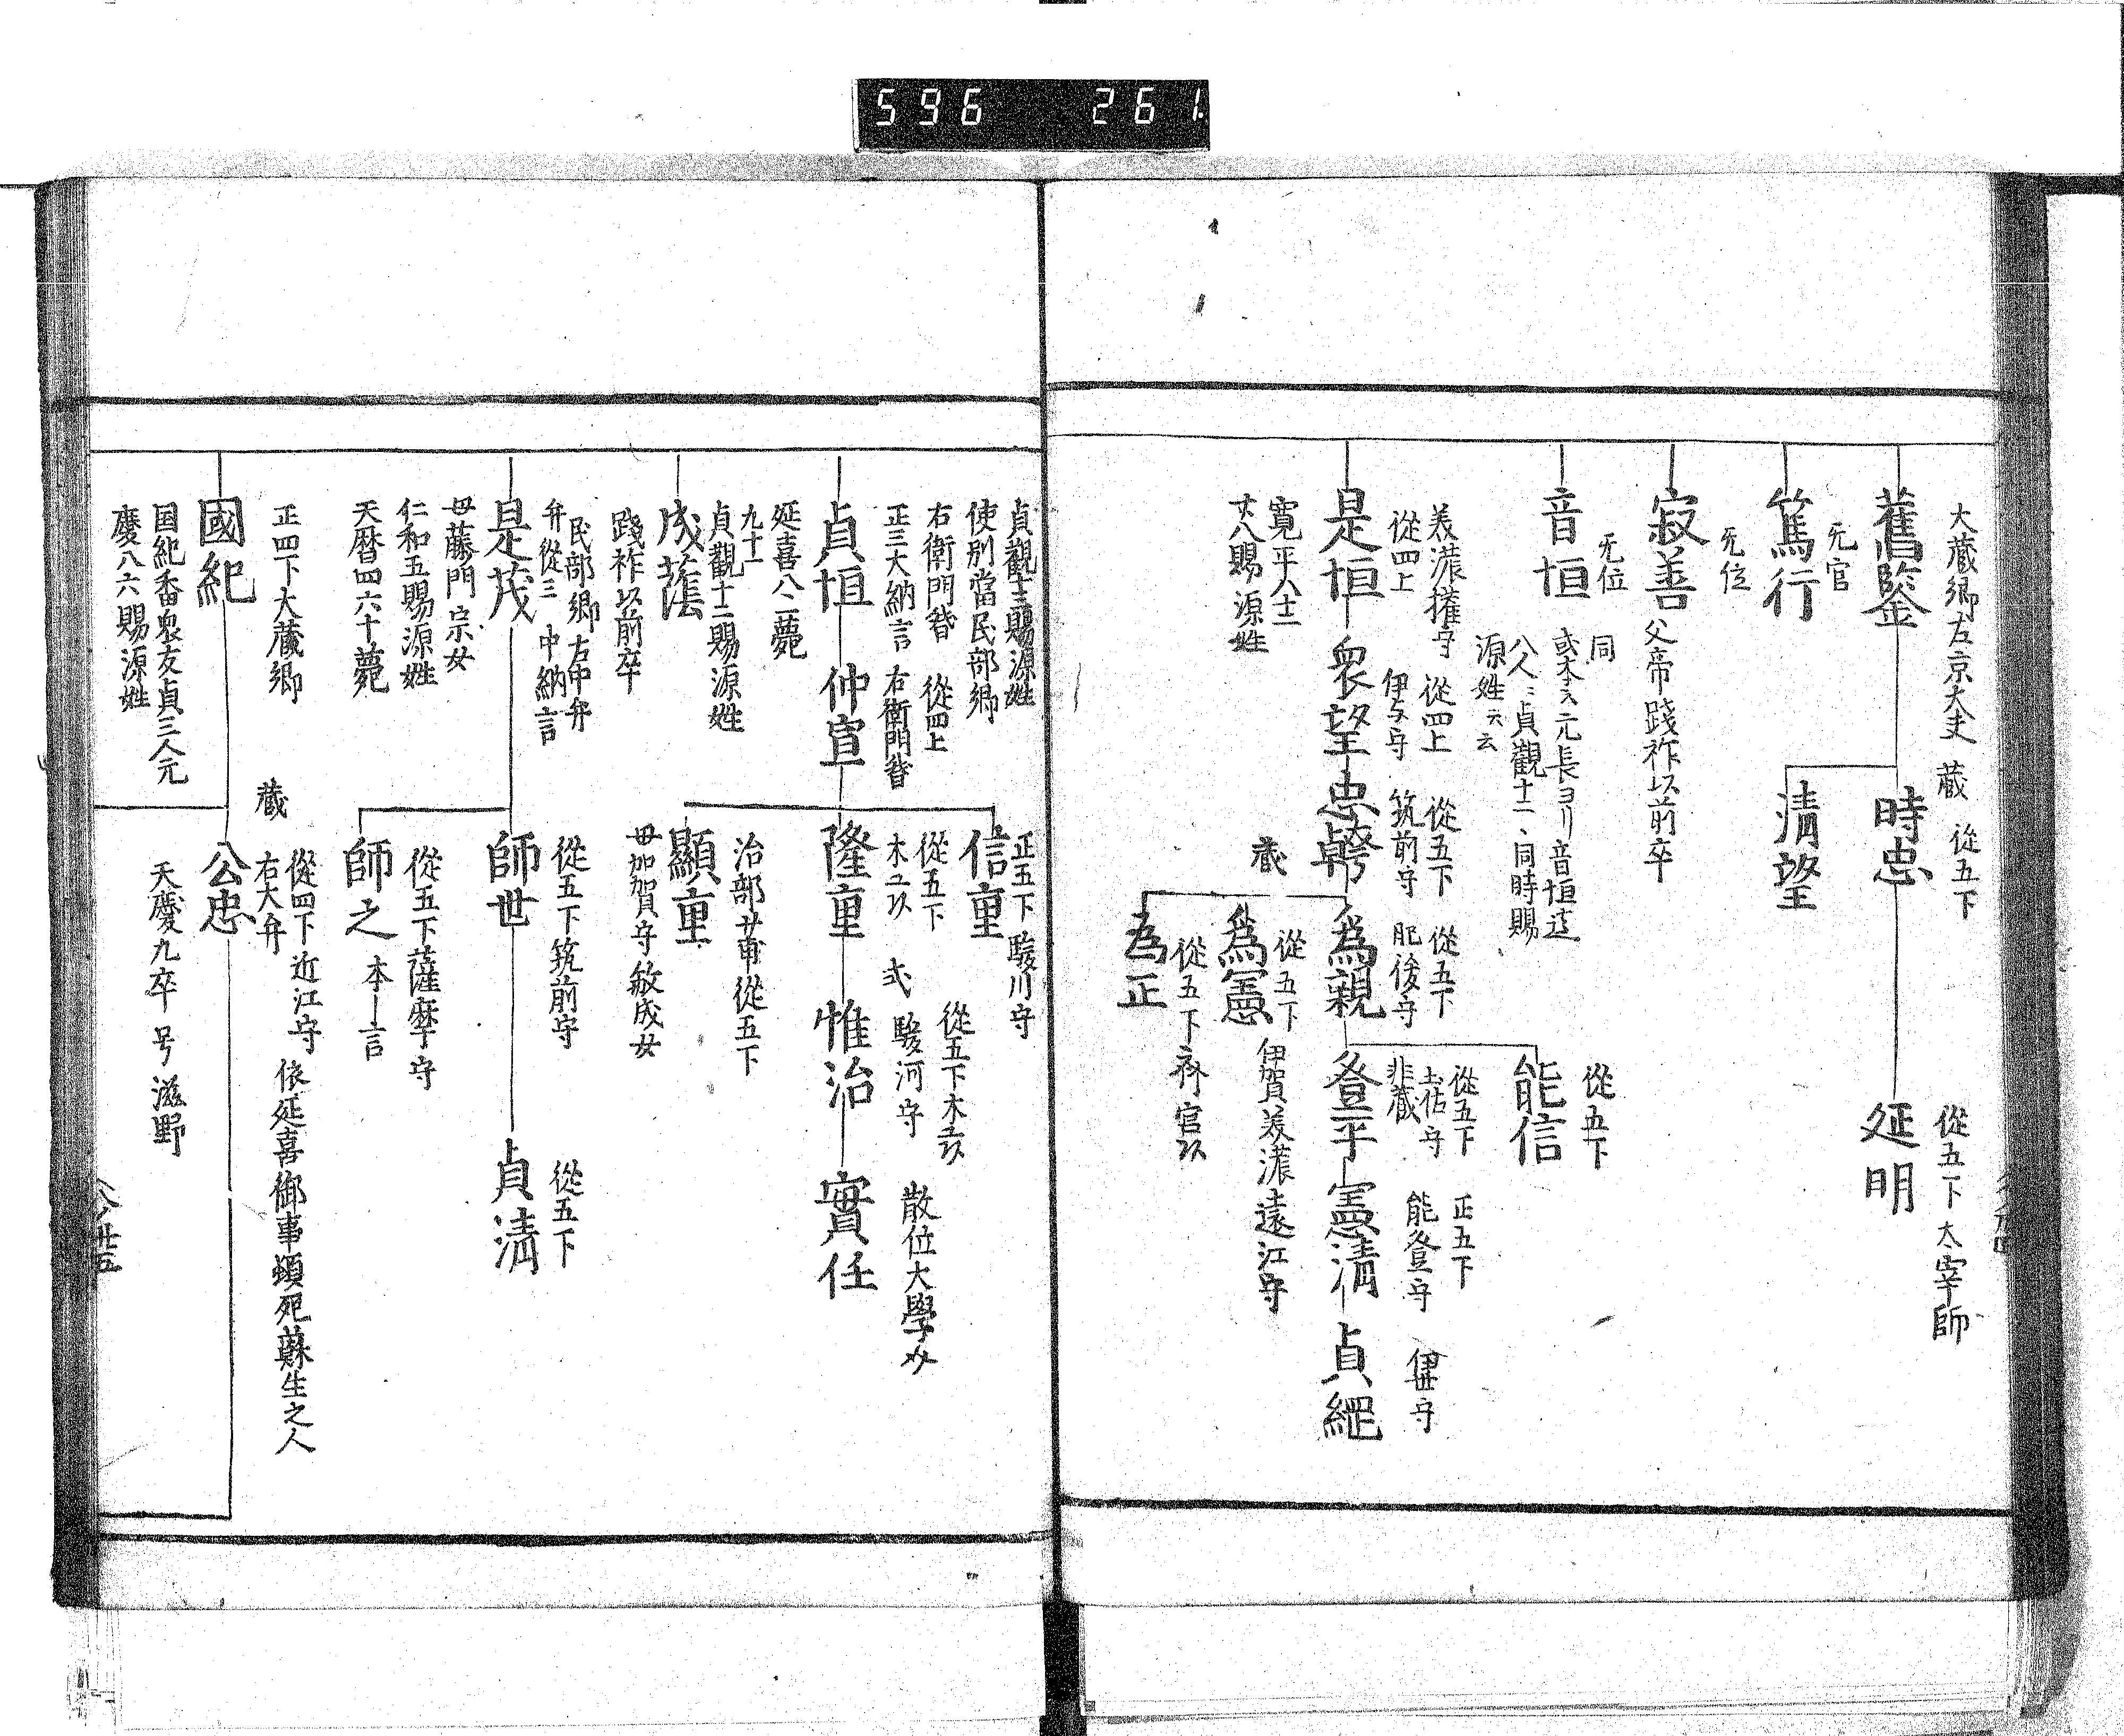 596 261
大蔵卿左京大夫
舊鑒
蔵 從五下
時忠
從五下 太宰師
延明
清望
无官
篤行
无位
寂善
父帝踐祚以前卒
无位
音恒
同
或本云元長ヨリ音恒迄
八人〻貞觀十二、同時賜
源姓云云
美濃權守
從四上
是恒
寛平八士二
十八賜源姓
從四上
伊与守
衆望
從五下
筑前守
忠
從五下
肥後守
爲親
從五下
能信
從五下
土佐守
非蔵
登平
正五下
能登守
憲清
伊世守
貞綱
蔵
從五下
爲憲
伊賀美濃遠江守
從五下
為正
貞觀士三賜源姓
使別當民部卿
右衛門督
正三大納言
貞恒
延喜八二薨
從四上
右衛門督
仲宣
正五下駿川守
信重
從五下
隆重
從五下
駿河守
惟治
散位大學
實任
治部 從五下
顯重
母加賀守敏成女
九十一
貞觀十二賜源姓
成蔭
踐祚以前卒
民部卿 右中弁
弁 從三 中納言
是茂
母藤門宗女
仁和五賜源姓
天暦四六十薨
從五下筑前守
師世
從五下
貞清
從五下薩摩守
師之
正四下大蔵卿
國紀
国紀香泉友貞三人元
慶八六賜源姓
蔵
從四下近江守
右大弁
公忠
依延喜御事頓死蘇生之人
天慶九卒 号滋野